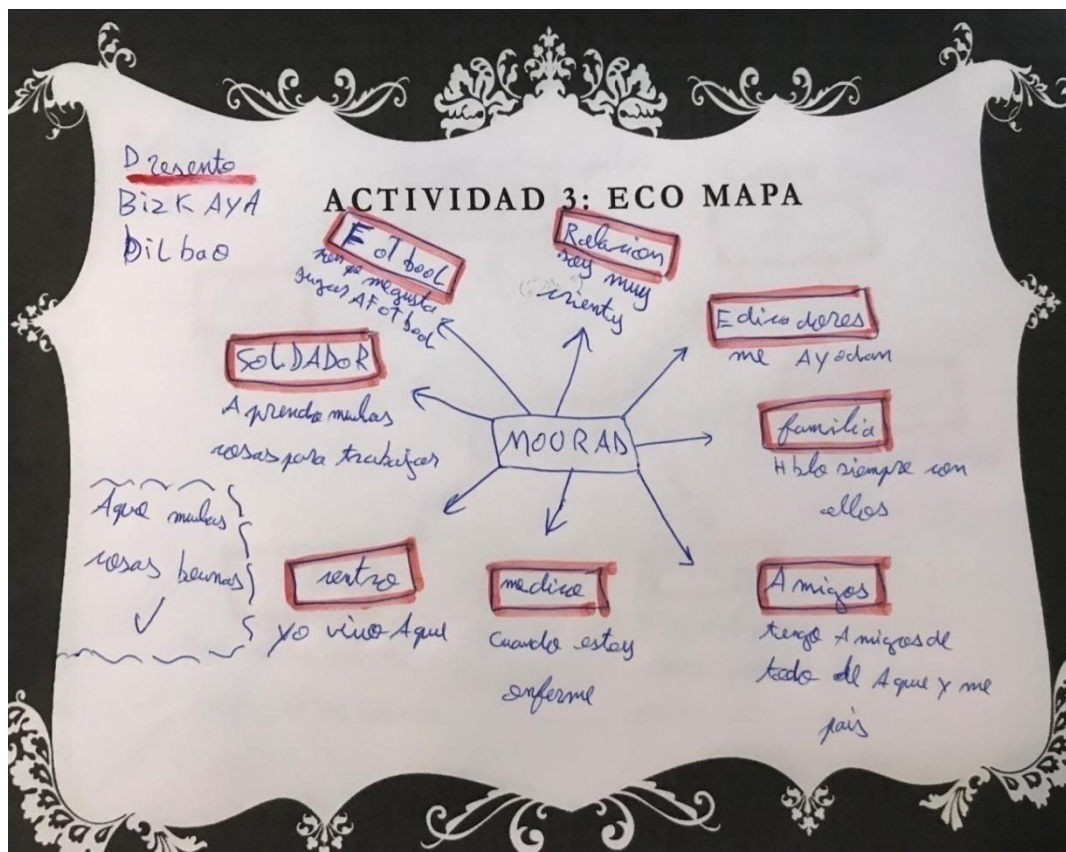 Presento
BizKAyA
BiLbao
ACTIVIDAD 3: ECO MAPA
Fotbool
me gusta
Jugar AFotbool
Relacion
soy muy
Edicadores
me Ayodan
SOLDADOR
Aprendo muchas
cosas para trabajar
MOURAD
familia
Hblo siempre con
ellos
Aque muchas
cosas beunas
centro
yo vivo Aque
medico
cuando estoy
enferme
Amigos
tengo Amigos de
todo de Aque y me
pais